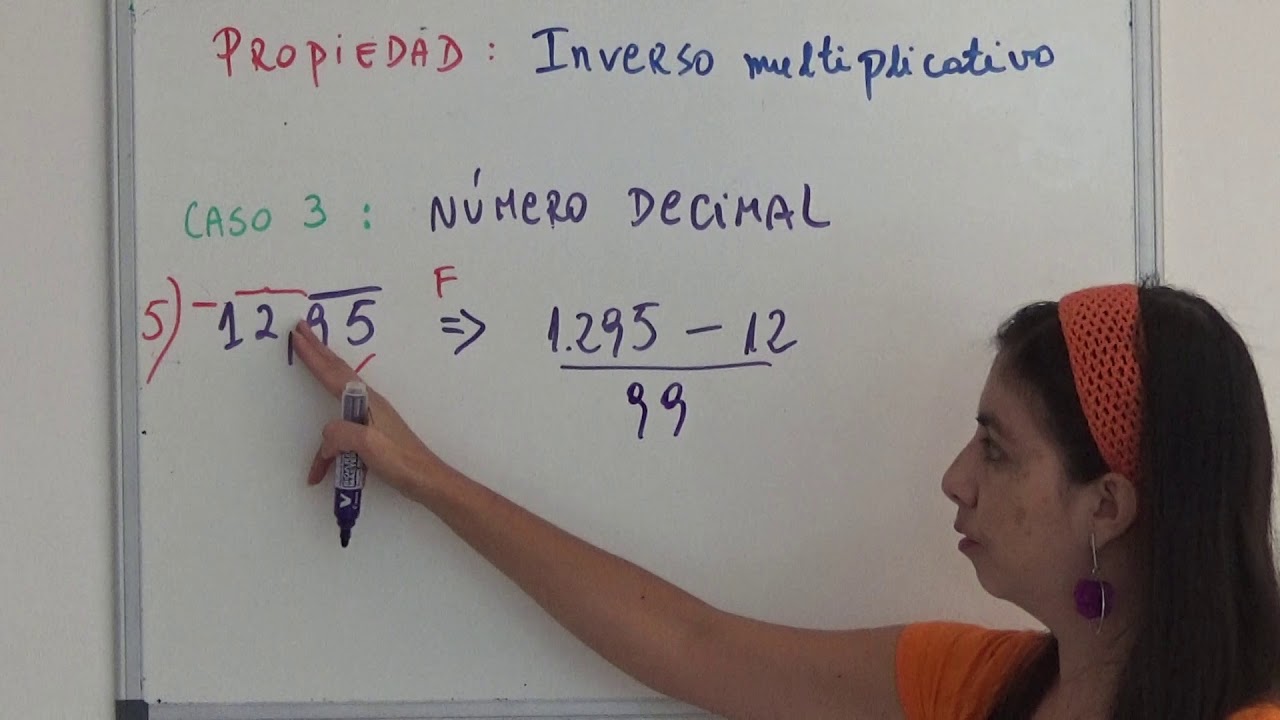 PROPIEDAD: Inverso multiplicativo
CASO 3: NÚMERO DECIMAL
5) -12,95 F => 1.295 - 12
99